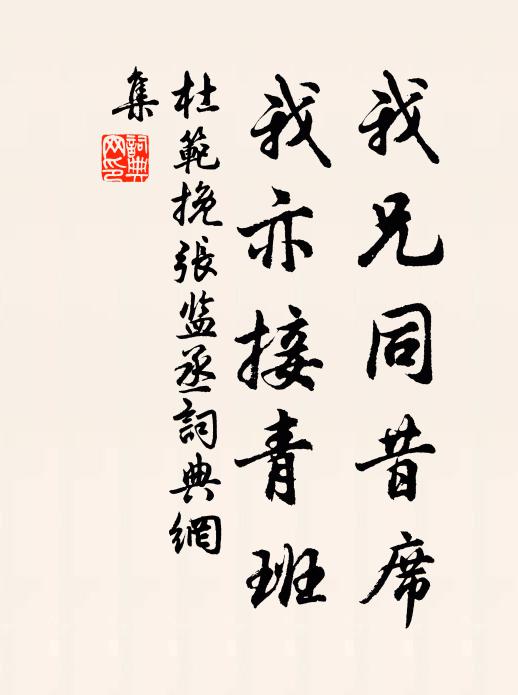 我兄同昔席
我亦接青班
杜範挽張監丞詞典網
集
詞典網印